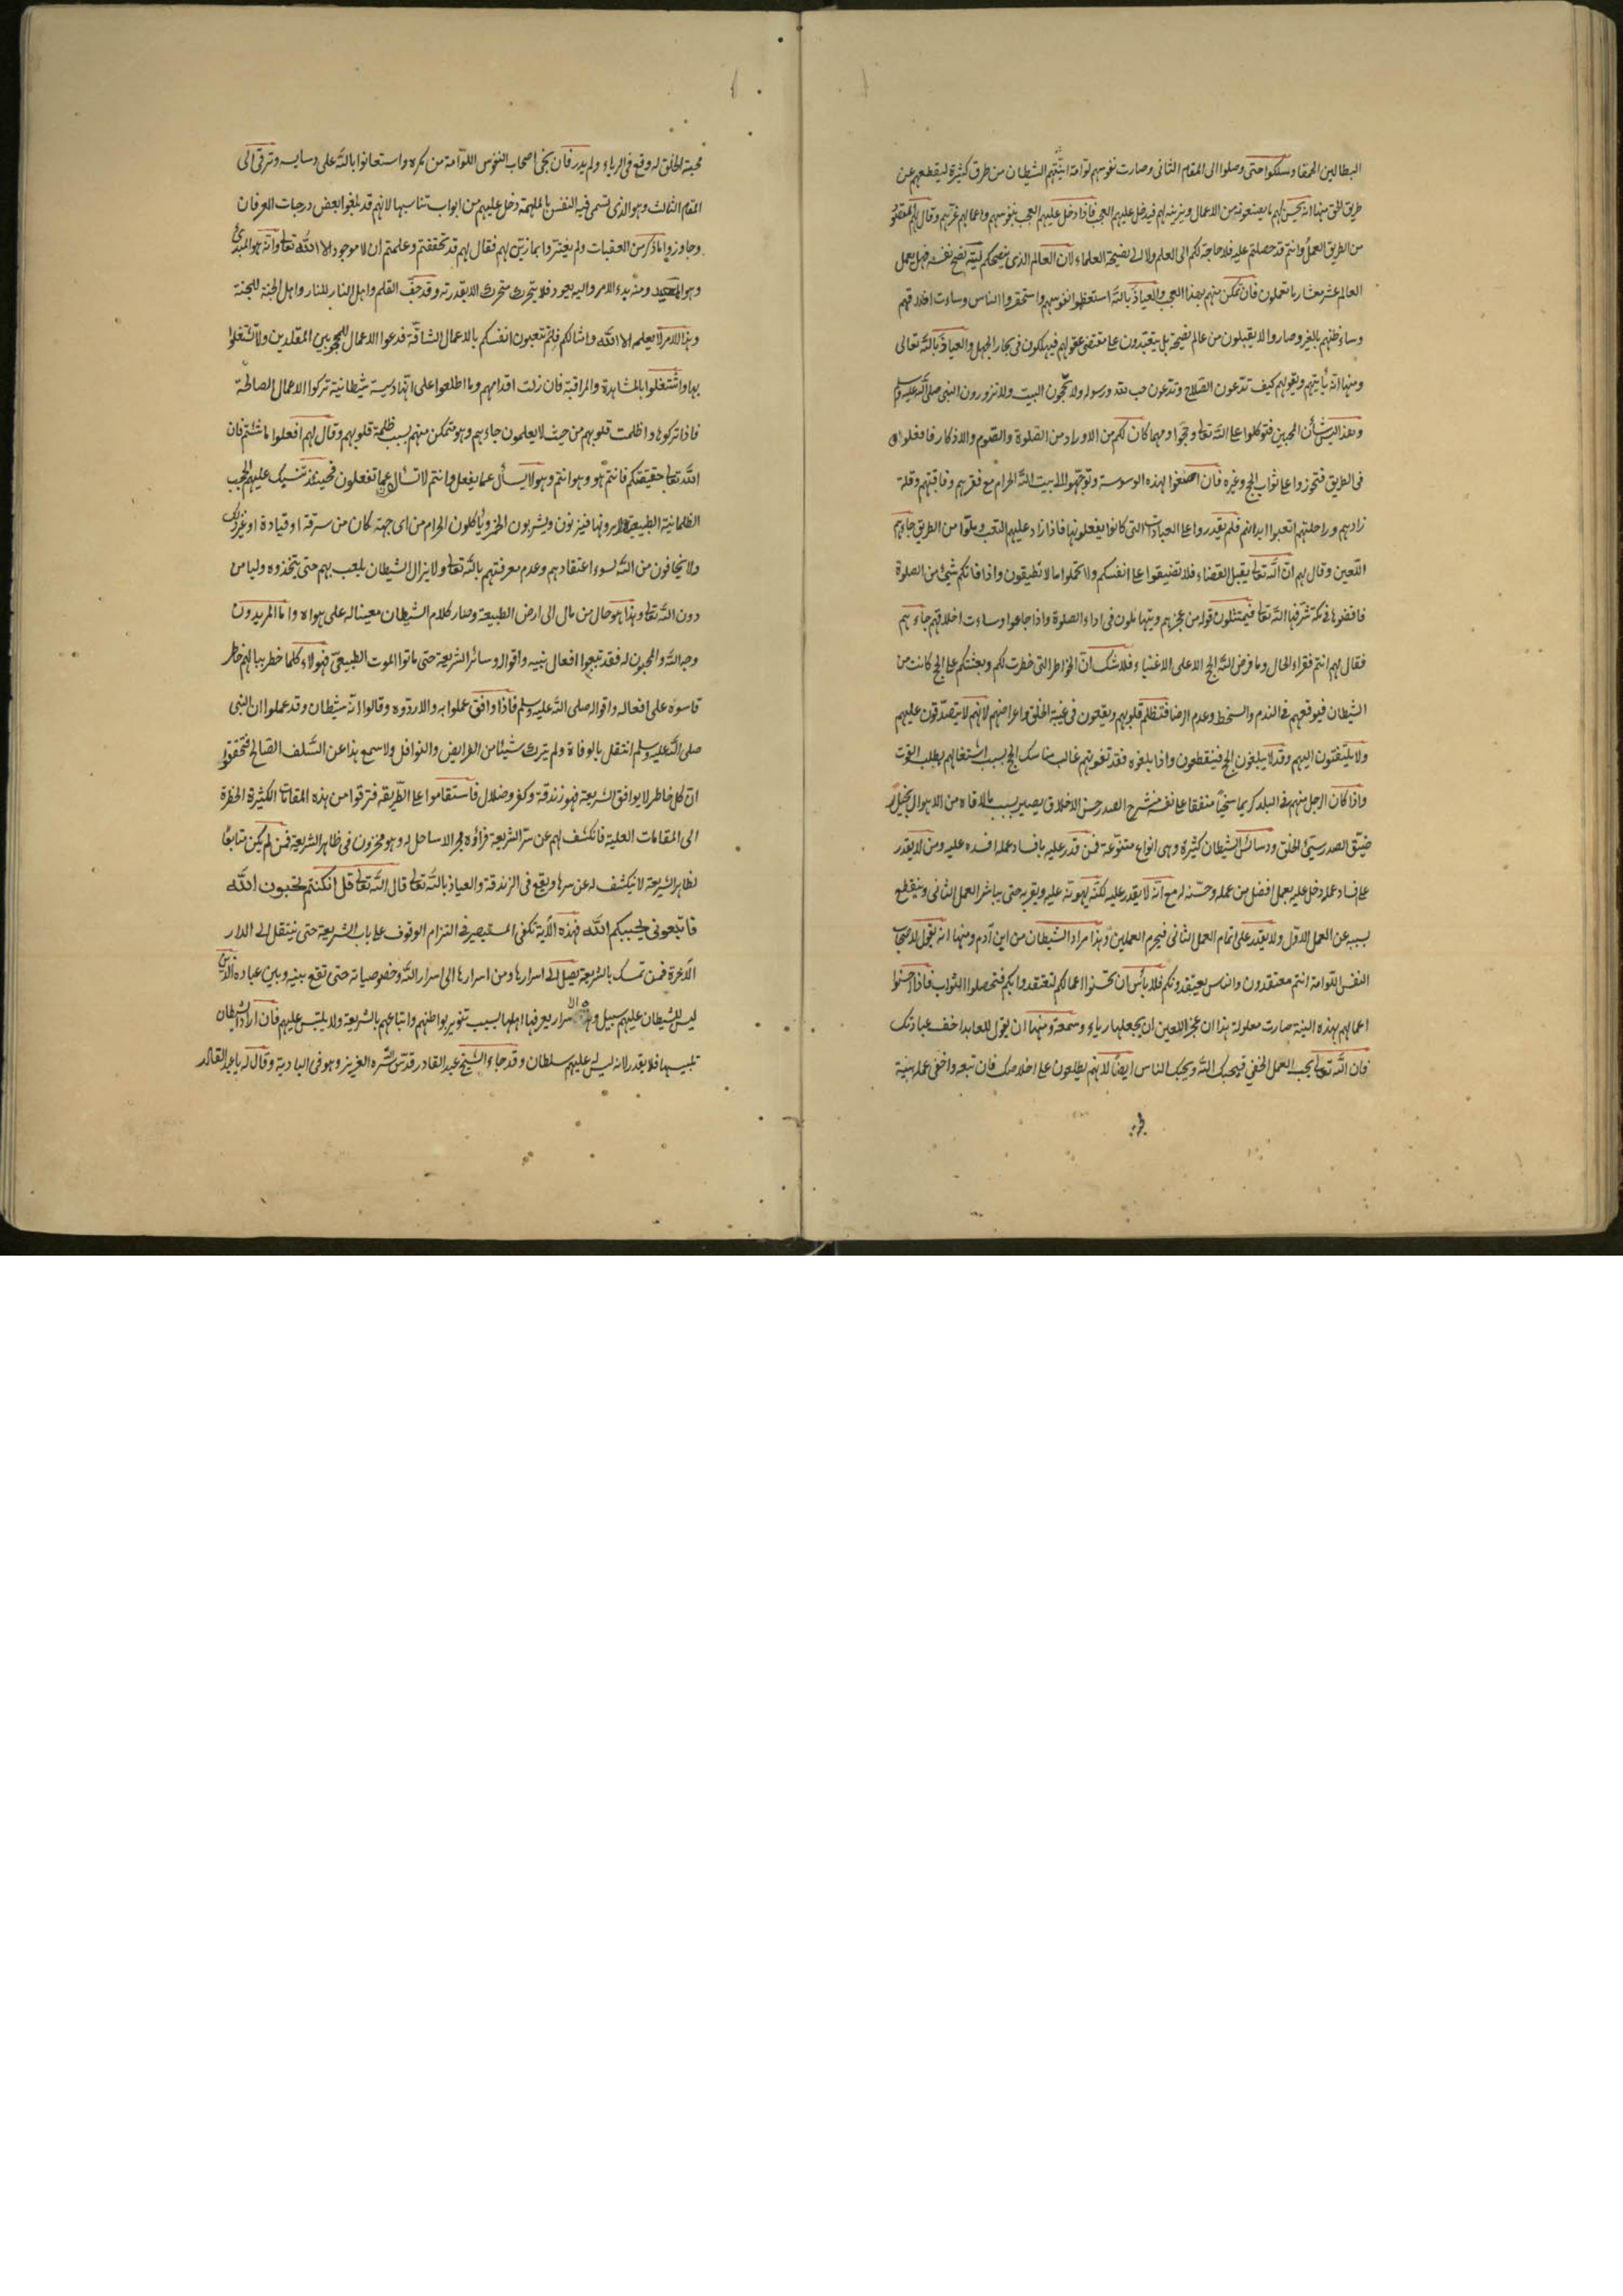 البطالين الحمقا وسلكوا حتى وصلوا الى المقام الثانى وصارت نفوسهم لوامة اتيهم الشيطان من طرق كثيرة ليقطعهم عن
طريق الحق منها انه يحسن لهم ما يصنعونه من الاعمال ويزينه لهم فيدخل عليهم العجب فاذا دخل عليهم العجب بنفوسهم واعمالهم غرّهم وقال لهم المقصود
من الطريق العمل وانتم قد حصلتم عليه فلا حاجة لكم الى العلم ولا الى نصيحة العلماء لان العالم الذى ينصحكم ليته نصح نفسه فهل يعمل
العالم عشر معشار ما تعملون فان تمكن منهم بهذا العجب والعياذ بالله استعظموا نفوسهم واستحقروا الناس وساءت اخلاقهم
وساء ظنهم بالغير وصاروا لا يقبلون من عالم نصيحة بل يتعبدون على مقتضى عقولهم فيهلكون فى بحار الجهل والعياذ بالله تعالى
ومنها انه يأتيهم ويقولهم كيف تدعون الصلاح وتدعون حب الله ورسوله ولا تحجون البيت ولا تزورون النبى صلى الله عليه وسلم
وهذا ليس شأن المحبين فتوكلوا على الله تعالى وحجوا ومهما كان لكم من الاوراد من الصلوة والصوم والاذكار فافعلوا
فى الطريق فتحوزوا على ثواب الحج وغيره فان اصغوا لهذه الوسوسة وتوجهوا الى بيت الله الحرام مع فقرهم وفاقتهم وقلة
زادهم وراحلتهم اتعبوا ابدانهم فلم يقدروا على العبادات التى كانوا يفعلونها فاذا زاد عليهم التعب وملوا من الطريق جاءهم
اللعين وقال لهم ان الله تعالى يقبل القضاء فلا تضيقوا على انفسكم ولا تحملوا ما لا تطيقون واذا فاتكم شىء من الصلوة
فاقضوها فى مكة شرفها الله تعالى فيمتثلون قوله من عجزهم ويتهاملون فى اداء الصلوة واذا جاعوا وساءت اخلاقهم جاءهم
فقال لهم انتم فقراء الحال وما فرض الله الحج الا على الاغنياء فلا شك ان الخواطر التى خطرت لكم وبعثتكم على الحج كانت من
الشيطان فيوقعهم فى الندم والسخط وعدم الرضا فتظلم قلوبهم ويقعون فى غيبة الخلق واعراضهم لانهم لا يتصدقون عليهم
ولا يلتفتون اليهم وقد لا يبلغون الحج فينقطعون واذا بلغوه فقد تفوتهم غالب مناسك الحج بسبب اشتغالهم بطلب القوت
واذا كان الرجل منهم فى البلد كريما سخيا منفقا على نفسه منشرح الصدر حسن الاخلاق يصير بسبب ما لاقاه من الاهوال بخيلا
ضيق الصدر سيئ الخلق ودسائس الشيطان كثيرة وهى انواع متنوعة فمن قدر عليه بافساد عمله افسده عليه ومن لا يقدر
على افساد عمله دخل عليه بعمل افضل من عمله وحسنه له مع انه لا يقدر عليه لكنه يهونه عليه ويقربه حتى يباشر العمل الثانى وينقطع
بسببه عن العمل الاول ولا يقدر على اتمام العمل الثانى فيحرم العملين وهذا مراد الشيطان من ابن آدم ومنها انه يقول لاصحاب
النفس اللوامة انتم معتقدون والناس يعتقدونكم فلا بأس ان تحسنوا اعمالكم لتعتقدوا بكم فتحصلوا الثواب فاذا احسنوا
اعمالهم بهذه النية صارت معلولة هذا ان عجز اللعين ان يجعلها رياء وسمعة ومنها ان يقول للعابد اخف عبادتك
فان الله تعالى يحب العمل الخفى فيحبك الله ويحبك الناس ايضا لانهم يطلعون على اخلاصك فان تبعه واخفى عمله بنية
محبة الخلق له وقع فى الرياء ولم يدر فان نجى اصحاب النفوس اللوامة من مكره واستعانوا بالله على دسايسه وترقى الى
المقام الثالث وهو الذى تسمى فيه النفس بالملهمة دخل عليهم من ابواب تناسبها لانهم قد بلغوا بعض درجات العرفان
وجاوزوا ما ذكر من العقبات ولم يغتروا بما زين لهم فقال لهم قد تحققتم وعلمتم ان لا موجود الا الله تعالى وانه هو المبدئ
وهو المعيد ومنه بدء الامر واليه يعود فلا يتحرك متحرك الا بقدرته وقد جف القلم واهل النار للنار واهل الجنة للجنة
وهذا الامر لا يعلمه الا الله وامثالكم فلم تتعبون انفسكم بالاعمال الشاقة فدعوا الاعمال للمحجوبين المقلدين ولا تشتغلوا
بها واشتغلوا بالمشاهدة والمراقبة فان زلت اقدامهم وما اطلعوا على انها دسيسة شيطانية تركوا الاعمال الصالحة
فاذا تركوها واظلمت قلوبهم من حيث لا يعلمون جاءهم وهو متمكن منهم بسبب ظلمة قلوبهم وقال لهم افعلوا ما شئتم فان
الله تعالى حقيقتكم فانتم هو وهو انتم وهو لا يسأل عما يفعل وانتم لا تسألون عما تفعلون فحينئذ عليهم الحجب
الظلمانية الطبيعية فيزنون ويشربون الخمر ويأكلون الحرام من اى جهة كان من سرقة او قيادة او غير ذلك
ولا يخافون من الله لسوء اعتقادهم وعدم معرفتهم بالله تعالى ولا يزال الشيطان يلعب بهم حتى يتخذوه وليا من
دون الله تعالى وهذا هو حال من مال الى ارض الطبيعة وصار كلام الشيطان معينا له على هواه واما المريدون
وجه الله والمحبون له فقد تبعوا افعال نبيه واقواله وسائر الشريعة حتى ماتوا الموت الطبيعى فهؤلاء كلما خطر ببالهم خاطر
قاسوه على افعاله واقواله صلى الله عليه وسلم فاذا وافق عملوا به والا ردوه وقالوا انه شيطان وقد علموا ان النبى
صلى الله عليه وسلم انتقل بالوفاة ولم يترك شيئا من الفرايض والنوافل ولا سمع هذا عن السلف الصالح فتحققوا
ان كل خاطر لا يوافق الشريعة فهو زندقة وكفر وضلال فاستقاموا على الطريقة فترقوا من هذه المقامات الكثيرة الخطرة
الى المقامات العلية فانكشف لهم عن سر الشريعة فرأوه بحر لا ساحل له وهو مخزون فى ظاهر الشريعة فمن لم يكن متابعا
لظاهر الشريعة لا يكشف له عن سرها ويقع فى الزندقة والعياذ بالله تعالى قال الله تعالى قل ان كنتم تحبون الله
فاتبعونى يحببكم الله فهذه الآية تكفى المستبصر فى التزام الوقوف على باب الشريعة حتى ينتقل الى الدار
الآخرة فمن تمسك بالشريعة يصل الى اسرارها ومن اسرارها الى اسرار الله وخصوصياته حتى تقع بينه وبين عباده الذين
ليس للشيطان عليهم سبيل وهذه الاسرار يعرفها اهلها بسبب تنوير بواطنهم واتباعهم بالشريعة ولا يلتبس عليهم فان اراد الشيطان
تلبيسها فلا يقدر لانه ليس له عليهم سلطان وقد جاء الشيخ عبد القادر قدس الله سره العزيز وهو فى البادية وقال له يا عبد القادر